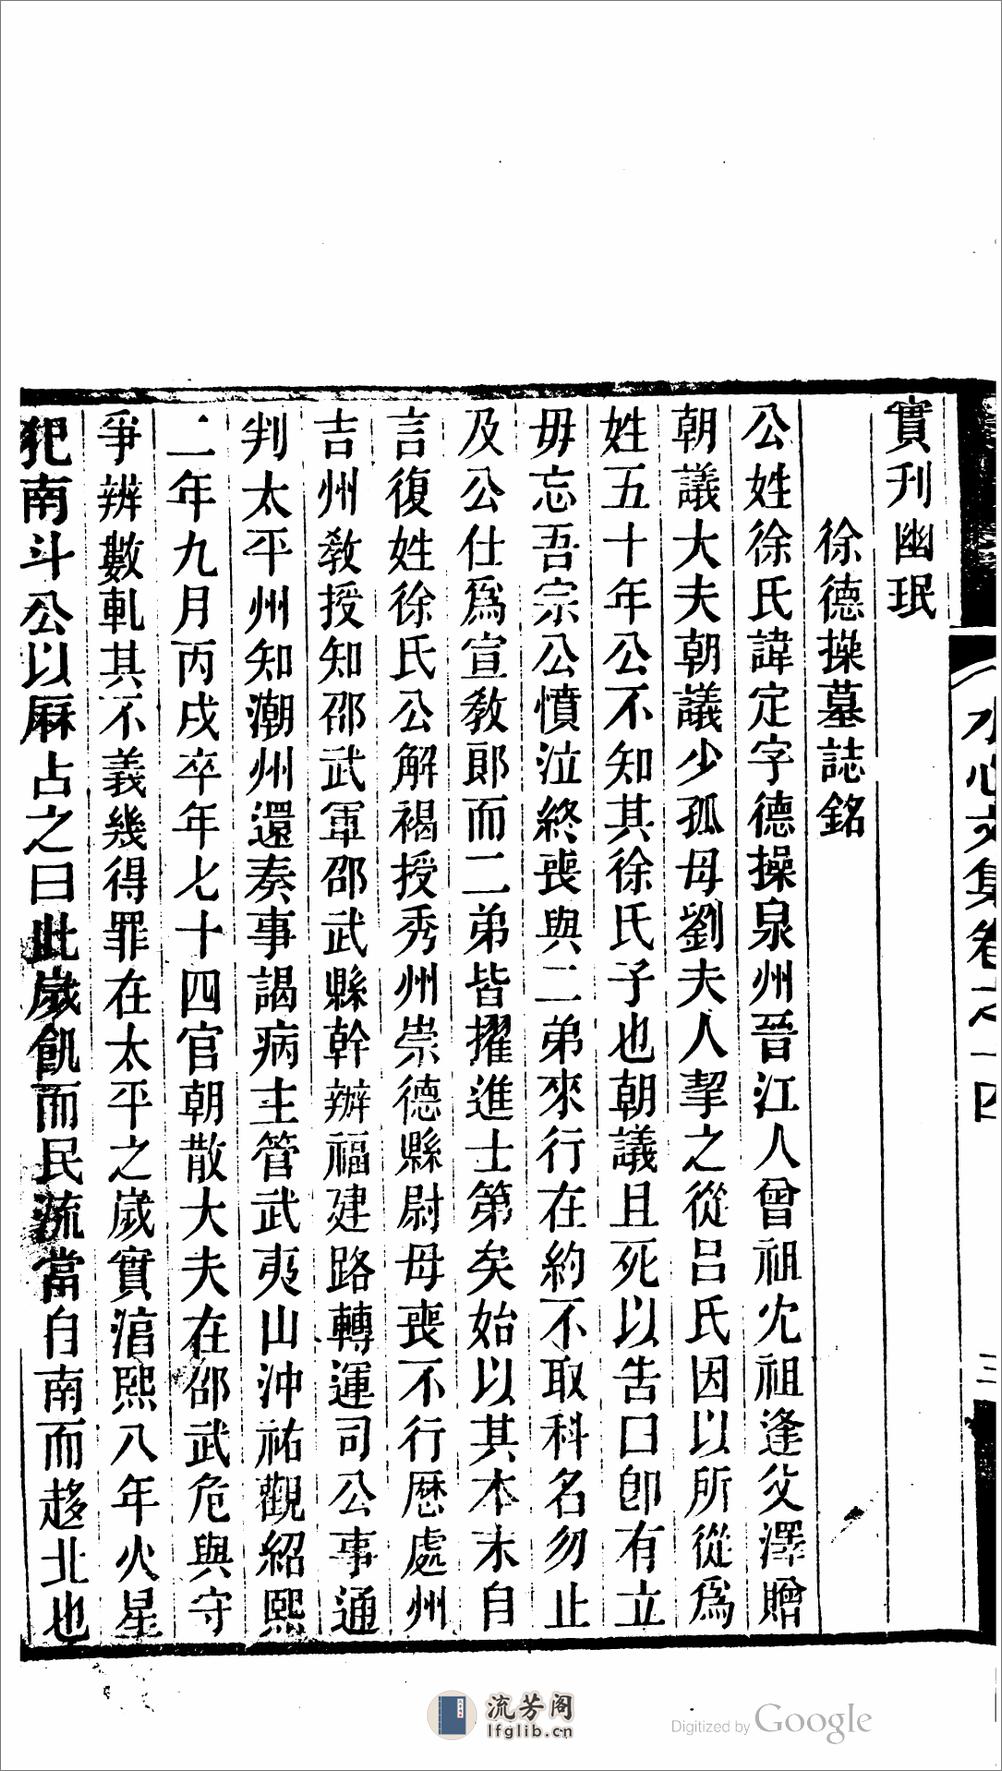 水心文集卷之十四
三
實刊幽珉
徐德操墓誌銘
公姓徐氏諱定字德操泉州晉江人曾祖允祖逢父澤贈
朝議大夫朝議少孤母劉夫人挈之從呂氏因以所從爲
姓五十年公不知其徐氏子也朝議且死以告曰卽有立
毋忘吾宗公憤泣終喪與二弟來行在約不取科名勿止
及公仕爲宣敎郞而二弟皆擢進士第矣始以其本末自
言復姓徐氏公解褐授秀州崇德縣尉母喪不行歷處州
吉州敎授知邵武軍邵武縣幹辦福建路轉運司公事通
判太平州知潮州還奏事謁病主管武夷山沖祐觀紹熙
二年九月丙戌卒年七十四官朝散大夫在邵武危與守
爭辨數軋其不義幾得罪在太平之歲實淳熙八年火星
犯南斗公以厤占之曰此歲飢而民流當自南而趍北也
流芳阁
lfglib.cn
Digitized by Google